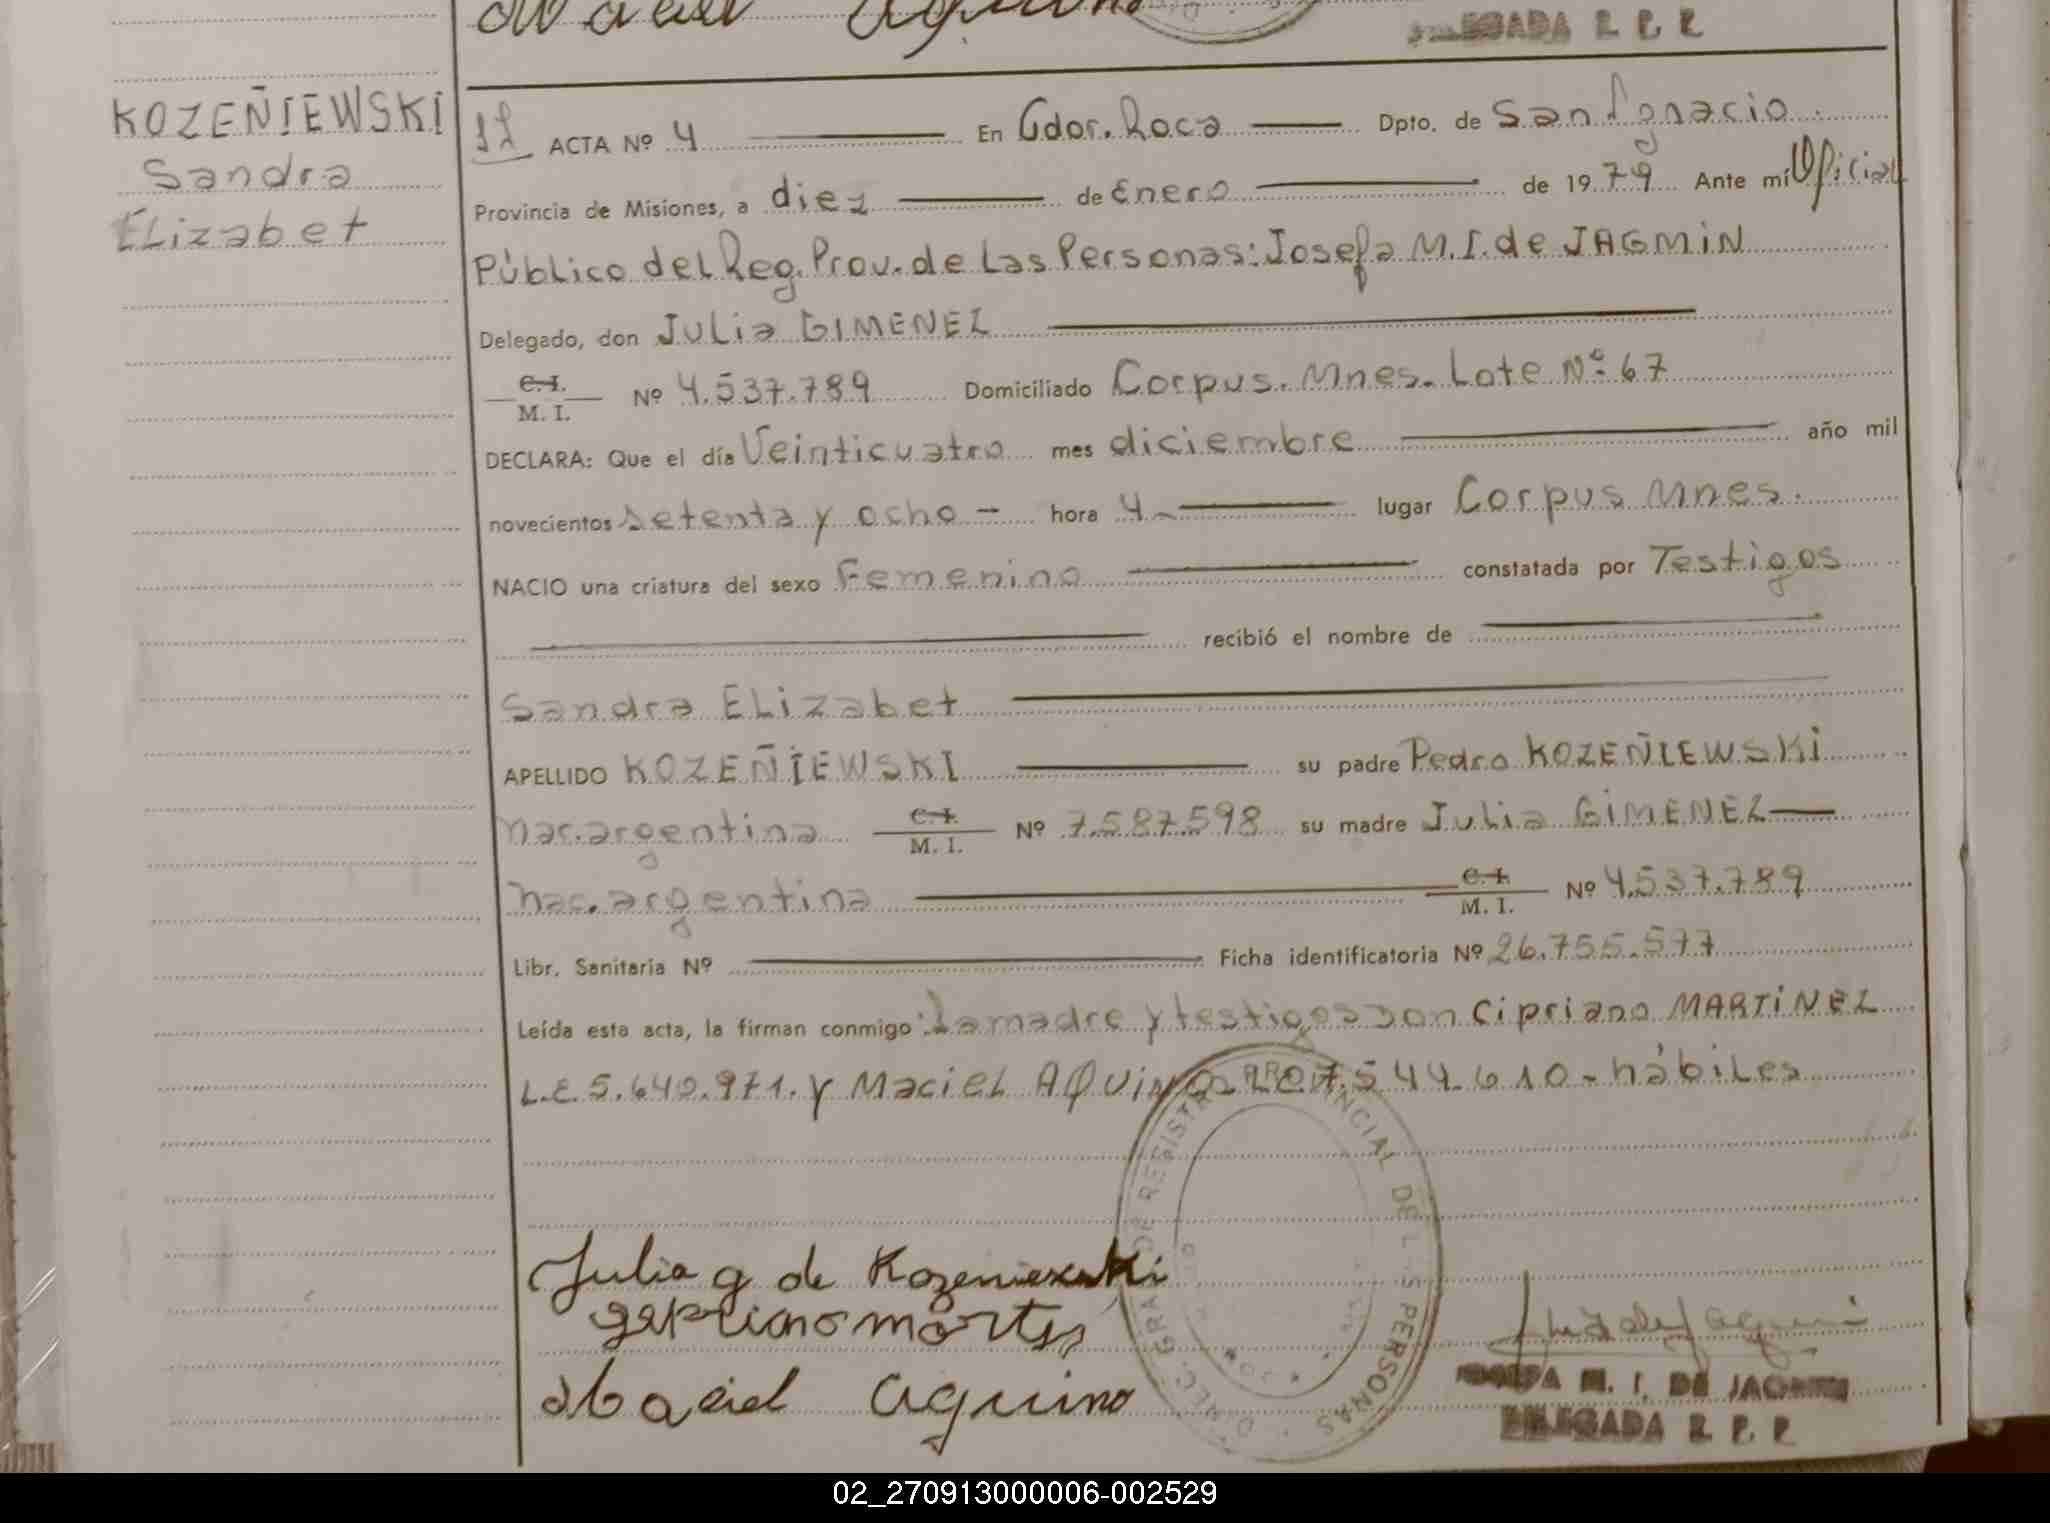 Maciel Aquino
DELEGADA R. P. P.
KOZEÑIEWSKI
Sandra
ELizabet
ACTA Nº 4 En Gdor. Roca Dpto. de San Ignacio.
Provincia de Misiones, a diez de Enero de 1979 Ante mí Oficial
Público del Reg. Prov. de Las Personas: Josefa M.I. de JAGMiN
Delegado, don JULia GIMENEZ
C. I.
M. I. Nº 4.537.789 Domiciliado Corpus. Mnes. Lote Nº 67
DECLARA: Que el día Veinticuatro mes diciembre año mil
novecientos setenta y ocho - hora 4 lugar Corpus Mnes.
NACIO una criatura del sexo Femenino constatada por Testigos
recibió el nombre de
Sandra ELizabet
APELLIDO KOZEÑIEWSKI su padre Pedro KOZEÑIEWSKi
nac. argentina C. I. M. I. Nº 7.587.598 su madre Julia GiMENEZ
nac. argentina C. I. M. I. Nº 4.537.789
Libr. Sanitaria Nº Ficha identificatoria Nº 26.755.577
Leída esta acta, la firman conmigo: la madre y testigos don Cipriano MARTiNEZ
L.E. 5.640.971. y MacieL AQUiNO LE 7.544.610 - hábiLes
DIREC. GRAL. DE REGISTRO PROVINCIAL DE L S PERSONAS
Julia g de Kozeniewski
Maciel Aquino
JOSEFA M. I. DE JAGMIN
DELEGADA R. P. P.
02_270913000006-002529